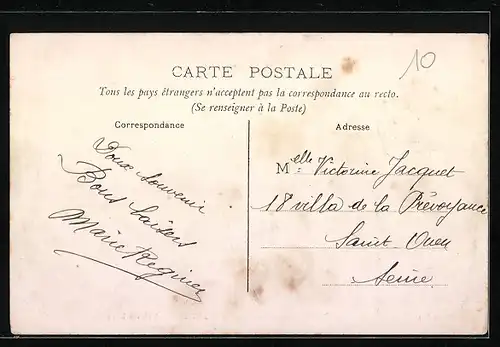 10
CARTE POSTALE
Tous les pays étrangers n'acceptent pas la correspondance au recto.
(Se renseigner à la Poste)
Correspondance
Doux souvenir
Bons baisers
Marie
Adresse
Melle Victorine Jacquet
18 villa de la Prévoyance
Saint-Ouen
Seine